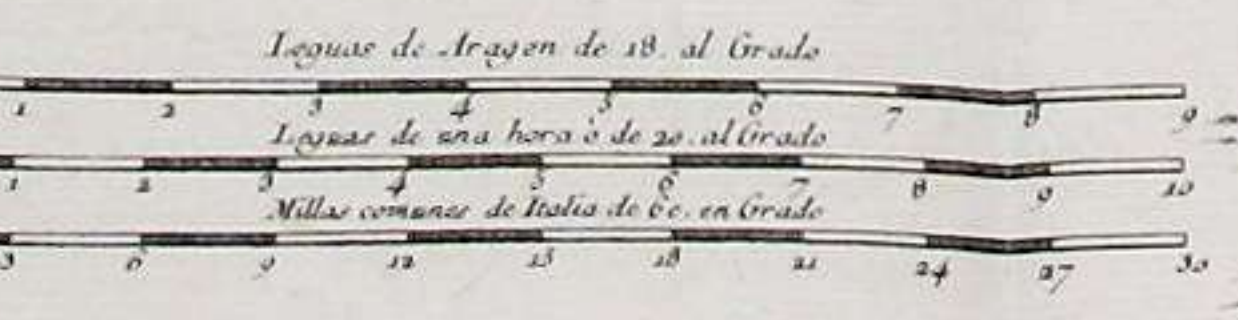 Leguas de Aragon de 18. al Grado
1 2 3 4 5 6 7 8 9
Leguas de una hora ò de 20. al Grado
1 2 3 4 5 6 7 8 9 10
Millas comunes de Italia de 60. en Grado
3 6 9 12 15 18 21 24 27 30